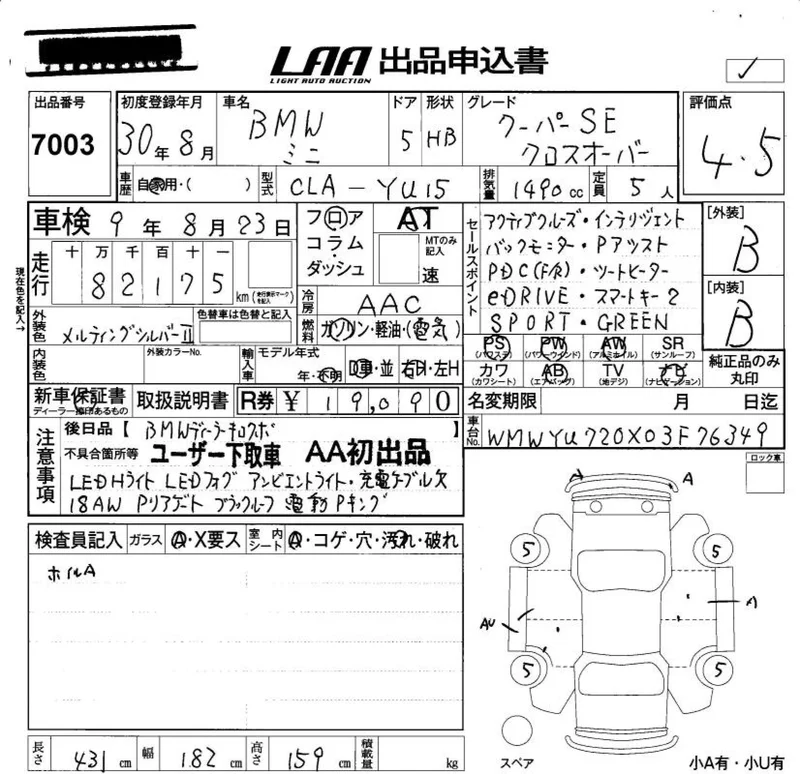 LAA 出品申込書
LIGHT AUTO AUCTION
✓
出品番号 7003
初度登録年月 30年8月
車名 BMW ミニ
ドア 5
形状 HB
グレード クーパーSE クロスオーバー
評価点 4.5
車歴 自家用・( )
型式 CLA-YU15
排気量 1490cc
定員 5人
車検 9年8月23日
フロア コラム・ダッシュ
AT
MTのみ記入 速
セールスポイント
アクティブクルーズ・インテリジェント
バックモニター・Pアシスト
PDC(F/R)・シートヒーター
eDRIVE・スマートキー2
SPORT・GREEN
[外装] B
[内装] B
現在色を記入→
走行 十 万 千 百 十 一
8 2 1 7 5 km (走行表示マークを記入)
冷房 AAC
燃料 ガソリン・軽油・(電気)
外装色 メルティングシルバーII
色替車は色替と記入
内装色
外装カラーNo.
輸入車 モデル年式 年・不明
D車・並 右H・左H
PS (パワステ) PW (パワーウインド) AW (アルミホイル) SR (サンルーフ)
カワ (カワシート) AB (エアバッグ) TV (地デジ) ナビ (ナビゲーション)
純正品のみ丸印
新車保証書
ディーラー捺印あるもの
取扱説明書
R券 ¥ 19,090
名変期限 月 日迄
車台No. WMWYU720X03F76349
ロック車
注意事項
後日品【 BMWディーラーキロスポ 】
不具合箇所等 ユーザー下取車 AA初出品
LEDHライト LEDフォグ アンビエントライト・充電ケーブル欠
18AW Pリアゲート ブラックルーフ 電動Pキング
検査員記入 ガラス A・X要ス 室内シート A・コゲ・穴・汚れ・破れ
ホイルA
A
5
5
AU
A
5
5
スペア
小A有・小U有
長さ 431cm
幅 182cm
高さ 159cm
積載量 kg